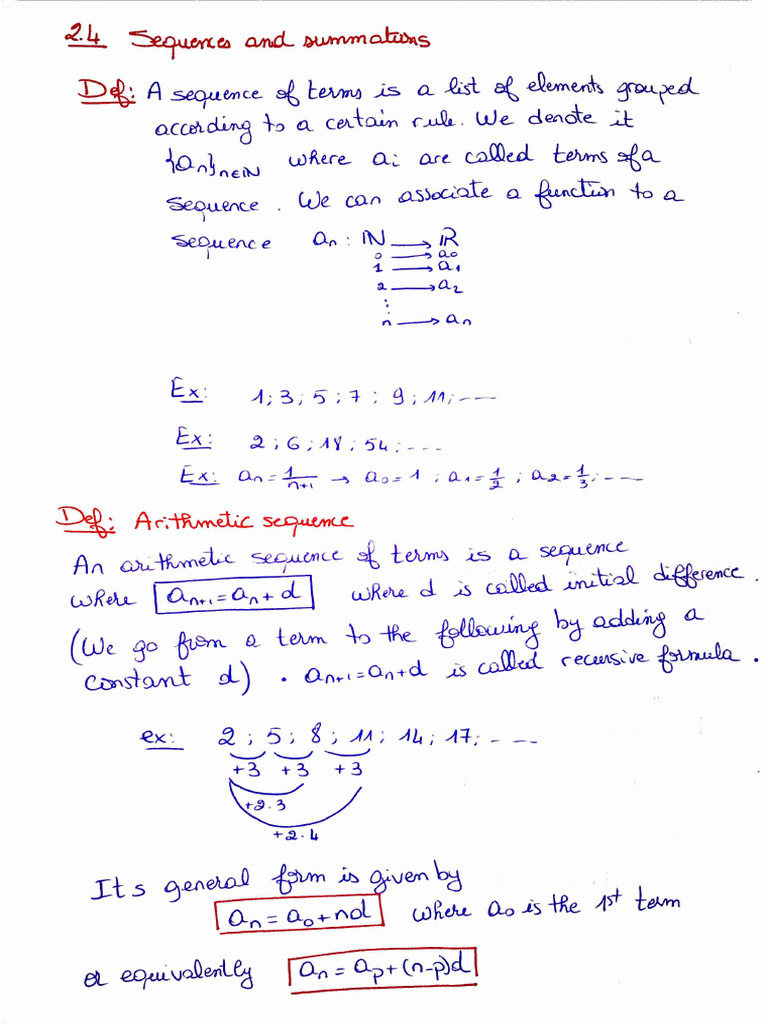 2.4 Sequences and summations
Def: A sequence of terms is a list of elements grouped
according to a certain rule. We denote it
{an}n∈ℕ where ai are called terms of a
sequence. We can associate a function to a
sequence an : ℕ → ℝ
0 → a0
1 → a1
2 → a2
⋮
n → an
Ex: 1; 3; 5; 7; 9; 11; ----
Ex: 2; 6; 18; 54; ----
Ex: an = 1/(n+1) → a0 = 1; a1 = 1/2; a2 = 1/3; ----
Def: Arithmetic sequence
An arithmetic sequence of terms is a sequence
where an+1 = an + d where d is called initial difference.
(We go from a term to the following by adding a
constant d). an+1 = an + d is called recursive formula.
ex: 2; 5; 8; 11; 14; 17; ----
+3 +3 +3
+2.3
+2.4
Its general form is given by
an = a0 + nd where a0 is the 1st term
or equivalently an = ap + (n-p)d